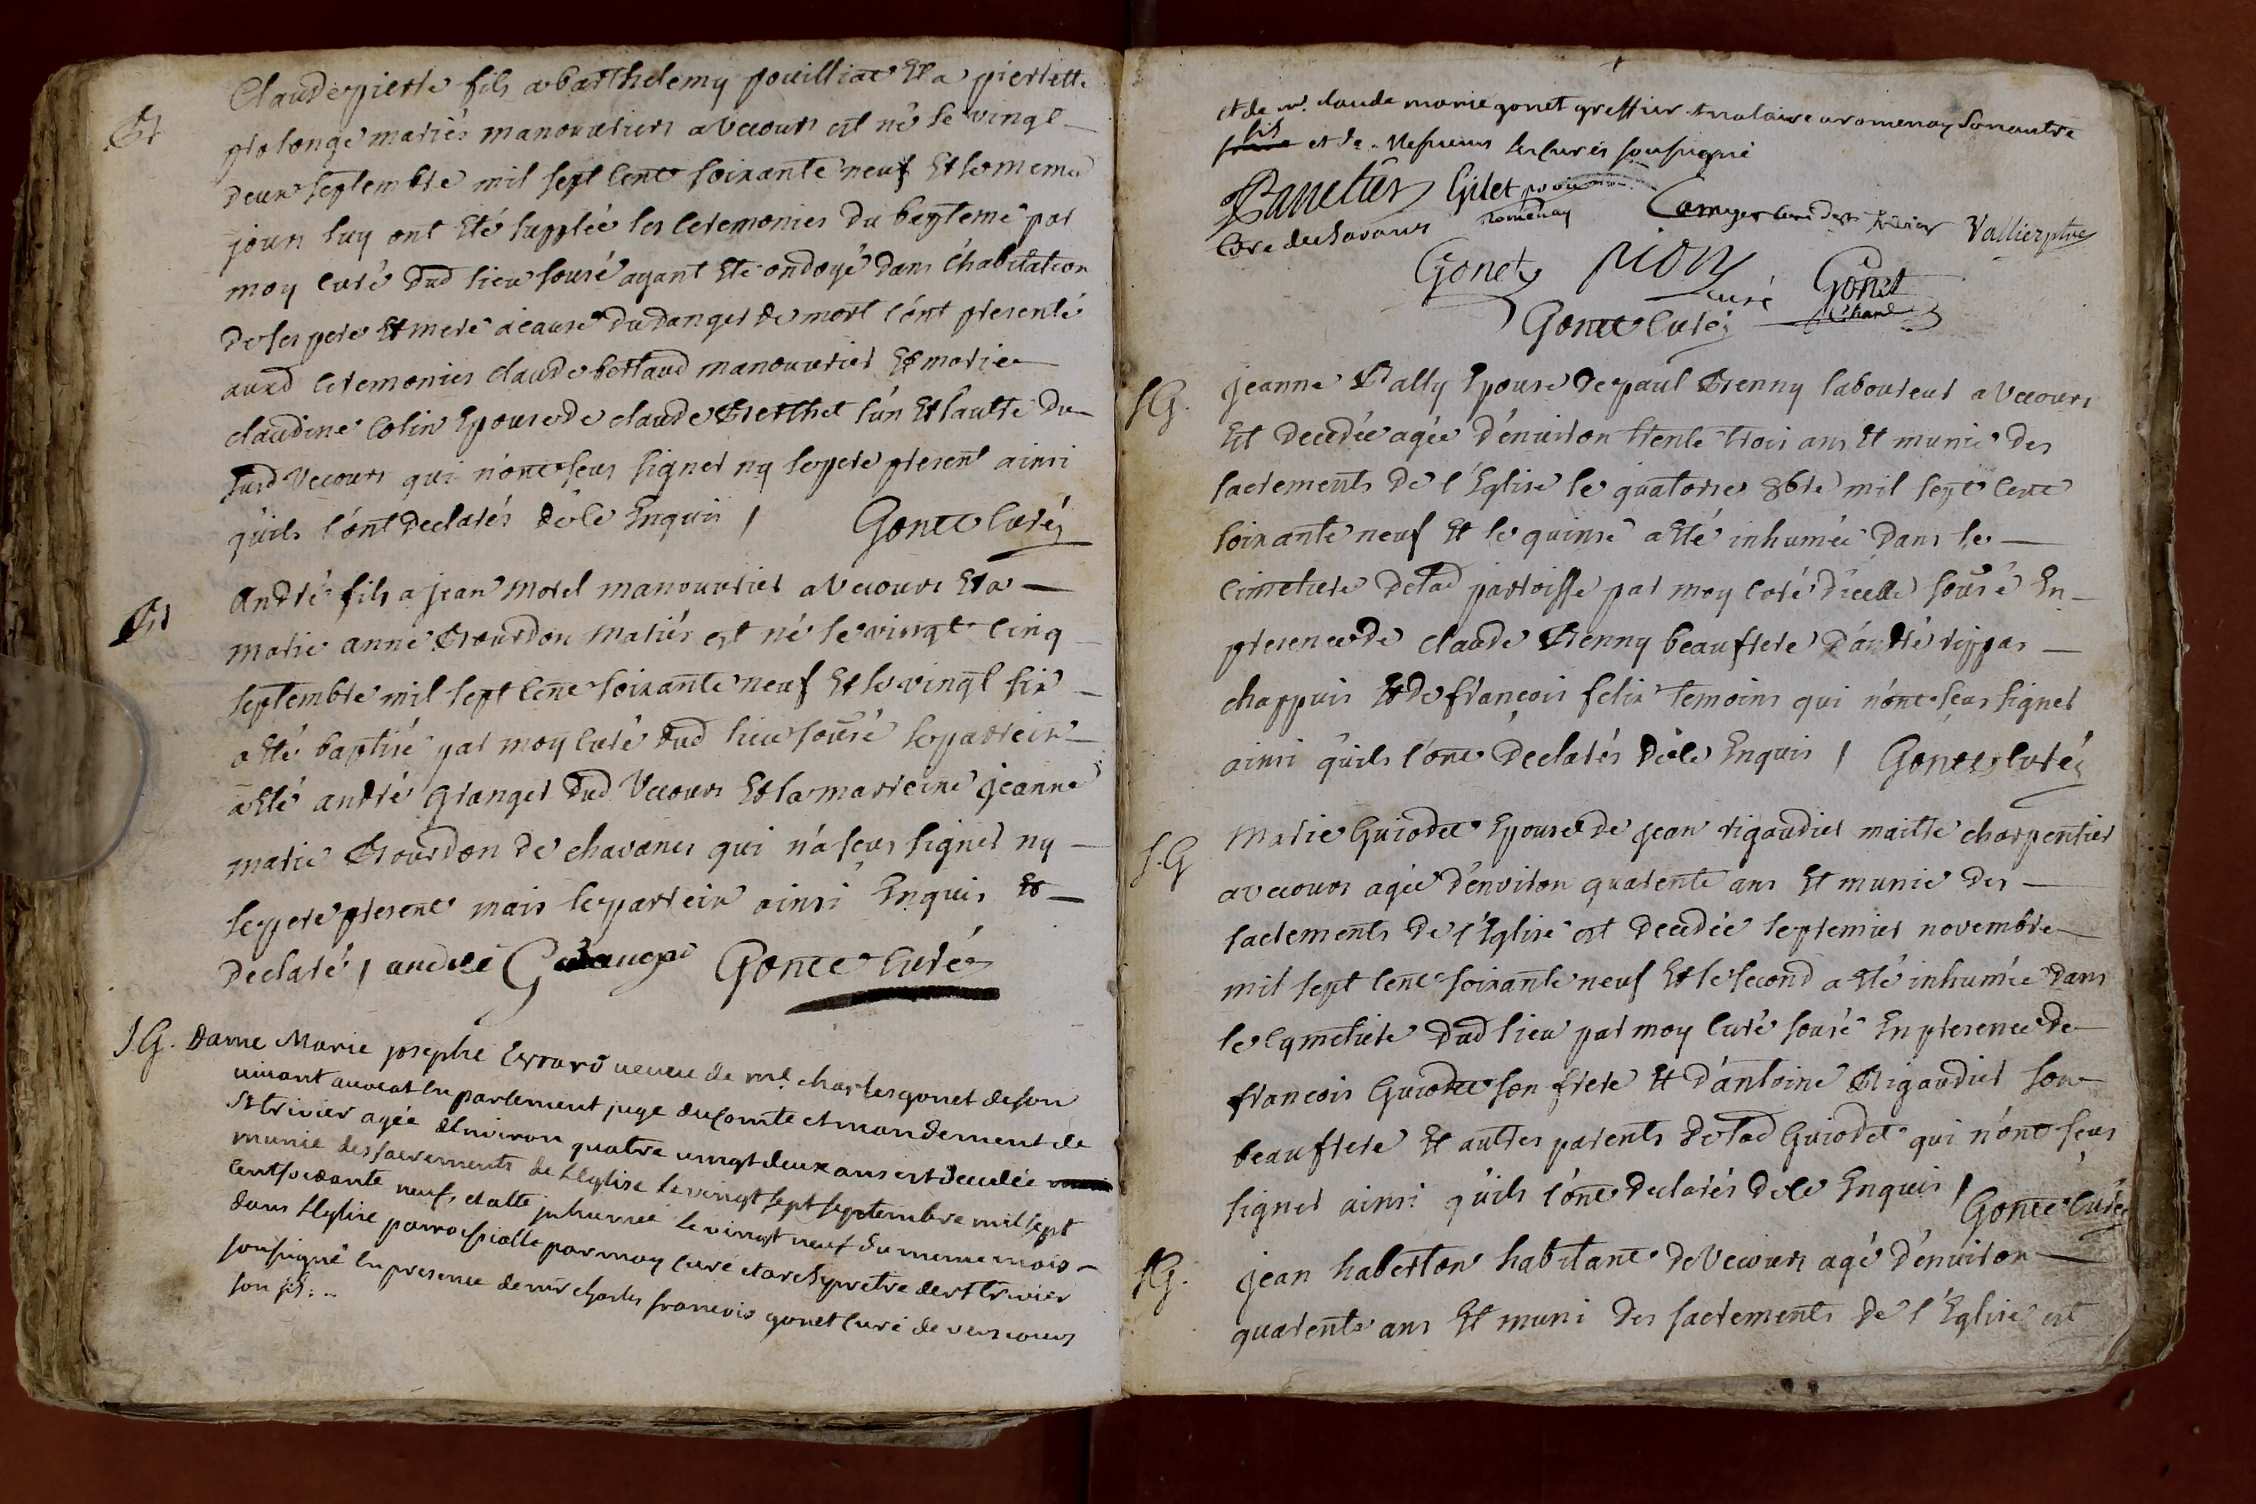 Bt
Claude pierre fils a barthelemy pouilliat Et a pierrette
prolonge mariés manouvriers a Vecours est né le vingt
deux septembre mil sept Cent soixante neuf Et le meme
jour luy ont Eté supplée les Ceremonies du bapteme par
moy Curé dud lieu sousé ayant Eté ondoyé dans l'habitation
de ses pere Et mere acause du danger de mort l'ont presenté
auxd Ceremonies claude bertaud manouvrier Et marie
claudine Colin Epouse de claude Berthet l'un Et l'autre du
susd Vecours qui n'ont seus signer ny le pere present ainsi
qu'ils l'ont declarés de ce Enquis / Gonet Curé
Bt
André fils a jean morel manouvrier a Vecours Et a
marie anne Bourdon mariés est né le vingt cinq
septembre mil sept Cent soixante neuf Et le vingt six
a Eté baptisé par moy Curé dud lieu sousé le parrein
a Eté andré Granger dud Vecours Et la marreine jeanne
marie Bourdon de chavanes qui n'a seus signer ny
le pere present mais le parrein ainsi Enquis Et
declaré / andre Granger Gonet Curé
S.G. Dame Marie josephe Errard veuve de mr. charles gonet de son
vivant avocat En parlement juge du Comté et mandement de
St trivier agée d'Environ quatre vingt deux ans est decedée
munie des sacrements de L'Eglise le vingt sept septembre mil sept
Cent soixante neuf, et a Eté inhumée le vingt neuf du meme mois
dans L'Eglise parroissialle par moy curé et archyprêtre de st trivier
soussigné En presence de mr charles francois gonet curé de vescours
son fils
et de mr. claude marie gonet greffier & notaire a romenay son autre
fils
et de Messieurs les curés soussigné
Pannetier Gilet Vallier ptre
Curé de chavanes romenay
Gonet pion curé Gonet
Gonet Curé
S.G.
jeanne Bally Epouse de paul Brenny laboureur a Vecours
Est decedée agée d'environ trente trois ans Et munie des
sacrements de l'Eglise le quatorse 8bre mil sept Cent
soixante neuf Et le quinse a Eté inhumée dans le
Cimetiere de lad parroisse par moy Curé d'icelle sousé En
presence de claude Brenny beaufrere d'andré rippas
chappuis Et de françois felix temoins qui n'ont seus signer
ainsi qu'ils l'ont declarés de ce Enquis / Gonet Curé
S.G
Marie Guiodet Epouse de jean rigaudier maitre charpentier
a vecours agée d'environ quarente ans Et munie des
sacrements de l'Eglise est decedée le premier novembre
mil sept Cent soixante neuf Et le second a Eté inhumée dans
le Cymetiere dud lieu par moy Curé sousé En presence de
francois Guiodet son frere Et d'antoine Rigaudier son
beaufrere Et autres parents de lad Guiodet qui n'ont seus
signer ainsi qu'ils l'ont declarés de ce Enquis / Gonet Curé
S.G.
jean haberton habitant de Vecours agé d'environ
quarente ans Et muni des sacrements de l'Eglise est